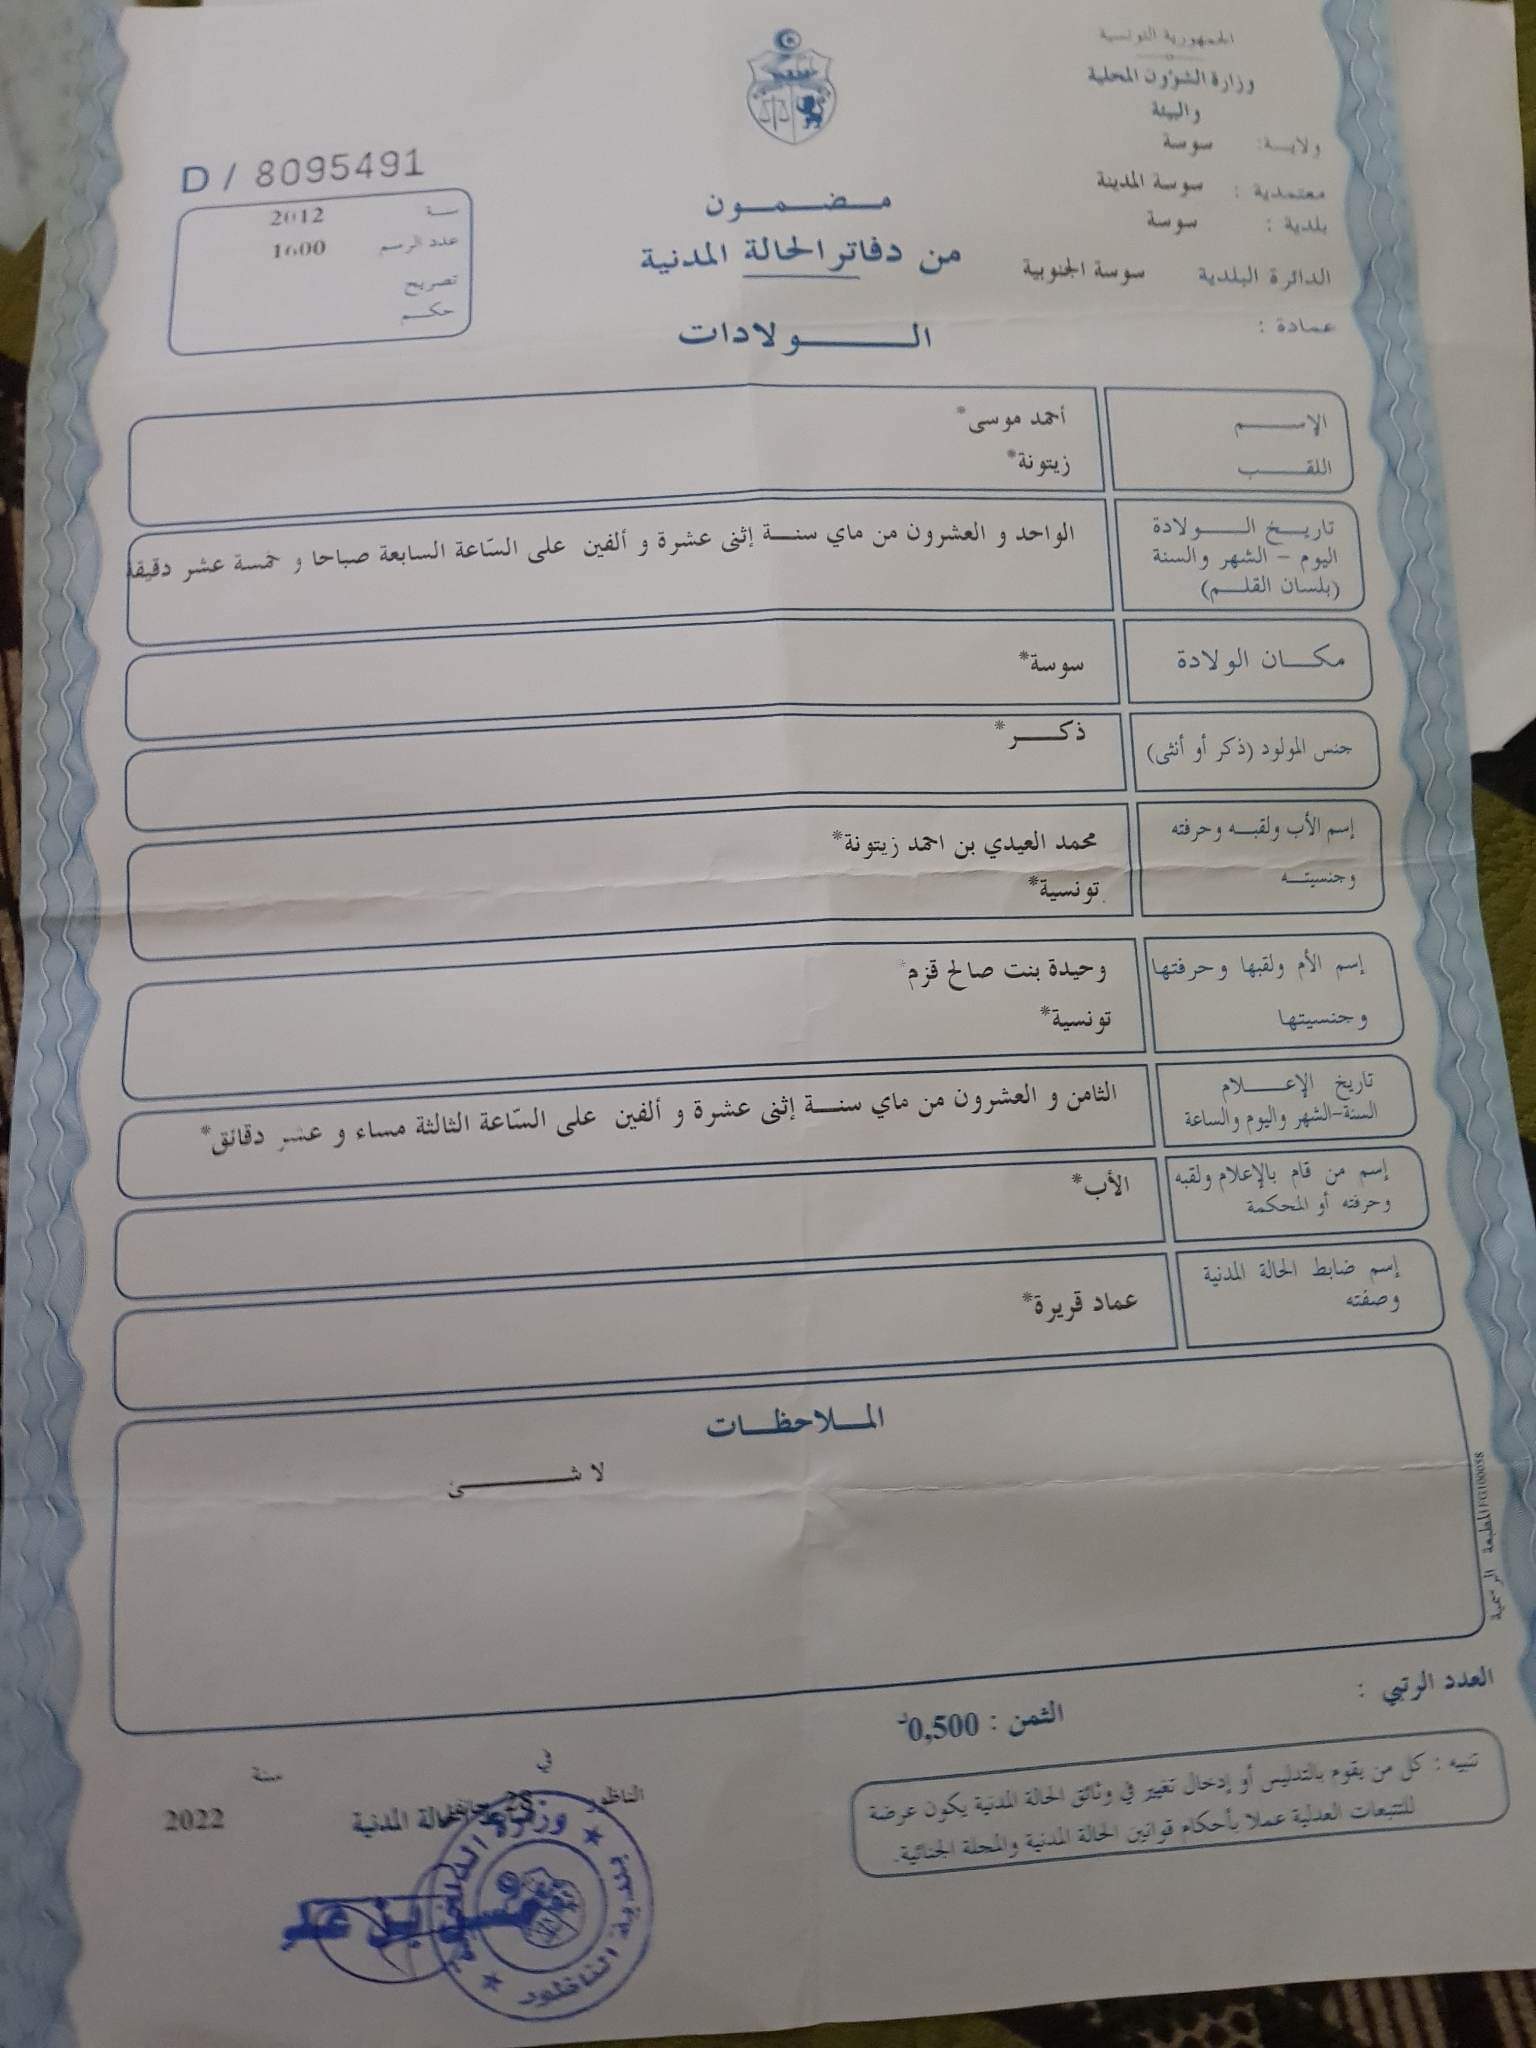 الجمهورية التونسية
وزارة الشؤون المحلية
والبيئة
ولاية: سوسة
معتمدية : سوسة المدينة
بلدية : سوسة
الدائرة البلدية سوسة الجنوبية
عمادة :
مضمون
من دفاتر الحالة المدنية
الولادات
D / 8095491
سنة 2012
عدد الرسم 1600
تصريح
حكم
الإسم أحمد موسى*
اللقب زيتونة*
تاريخ الولادة
اليوم - الشهر والسنة
(بلسان القلم)
الواحد و العشرون من ماي سنة إثنى عشرة و ألفين على السّاعة السابعة صباحا و خمسة عشر دقيقة
مكان الولادة سوسة*
جنس المولود (ذكر أو أنثى) ذكر*
إسم الأب ولقبه وحرفته محمد العيدي بن احمد زيتونة*
وجنسيته تونسية*
إسم الأم ولقبها وحرفتها وحيدة بنت صالح قزم*
وجنسيتها تونسية*
تاريخ الإعلام
السنة-الشهر واليوم والساعة
الثامن و العشرون من ماي سنة إثنى عشرة و ألفين على السّاعة الثالثة مساء و عشر دقائق*
إسم من قام بالإعلام ولقبه
وحرفته أو المحكمة
الأب*
إسم ضابط الحالة المدنية
وصفته
عماد قريرة*
الملاحظات
لا شئ
المطبعة الرسمية FG100038
العدد الرتبي :
الثمن : 0,500د
تنبيه : كل من يقوم بالتدليس أو إدخال تغيير في وثائق الحالة المدنية يكون عرضة
للتتبعات العدلية عملا بأحكام قوانين الحالة المدنية والمجلة الجنائية.
الناظور في سنة
28 2022
الحالة المدنية
وزارة الداخلية
بلدية الناظور
بن علي